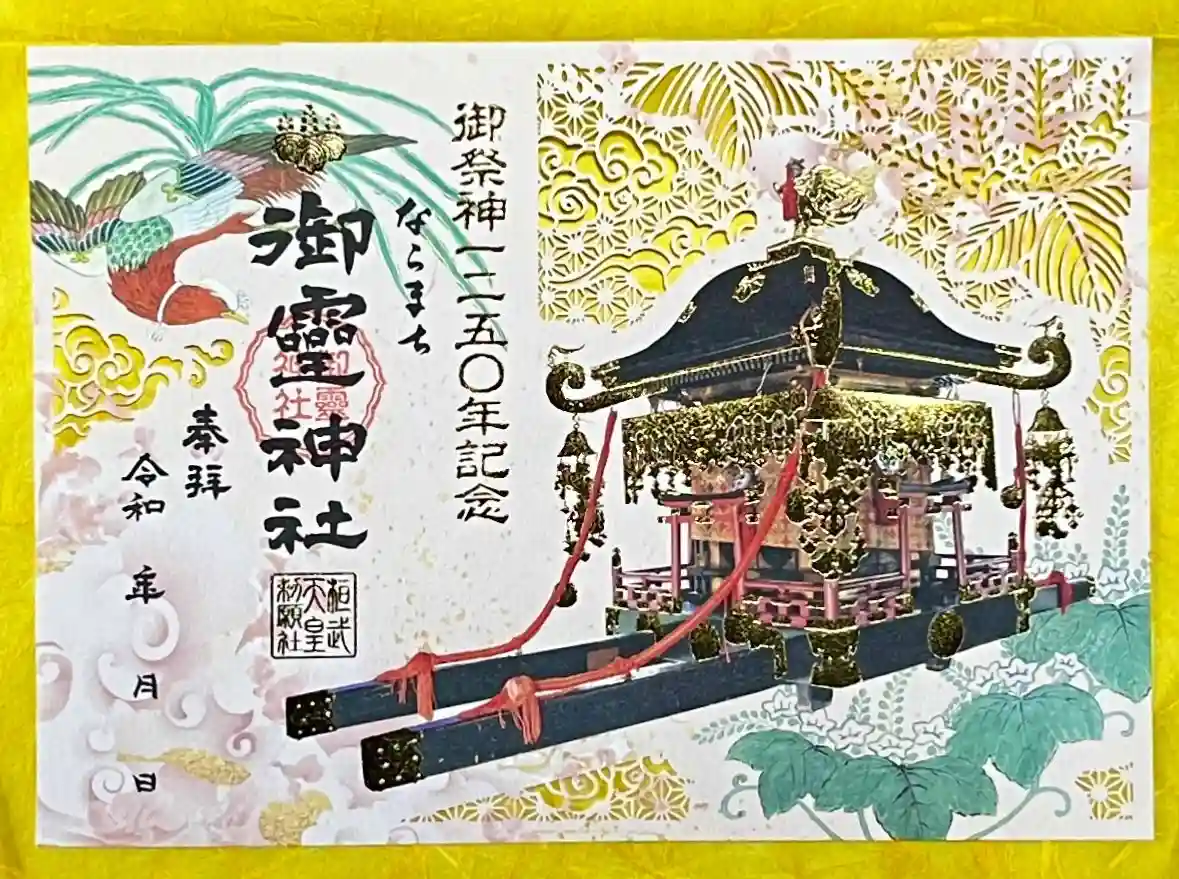 御祭神一二五〇年記念
ならまち
御霊神社
御靈神社
桓武天皇勅願社
奉拝
令和 年 月 日